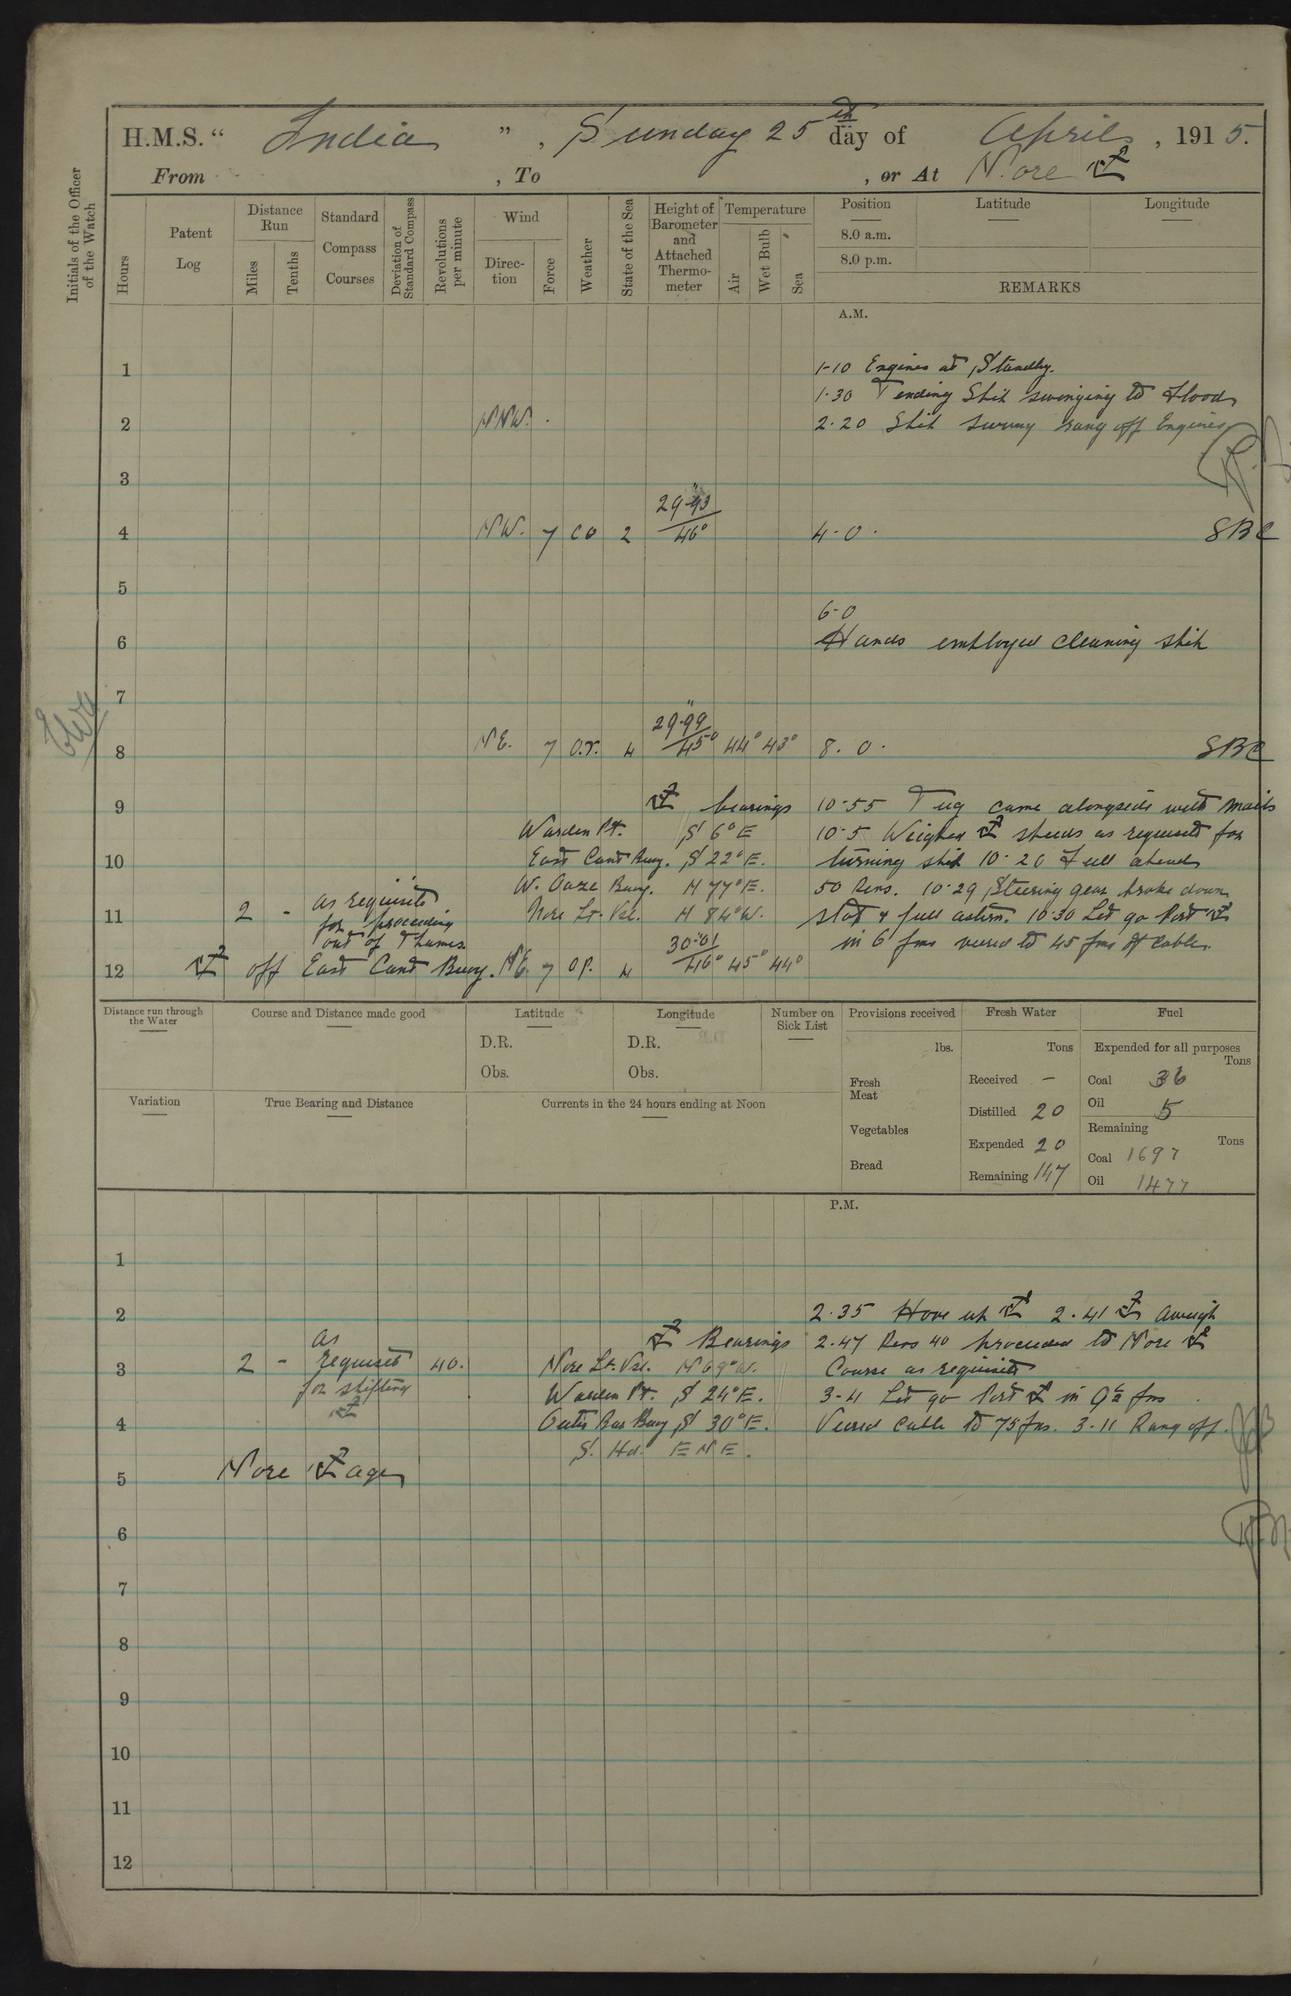 H.M.S. “ India ” , Sunday 25th day of April , 1915.
From , To , or At Nore ⚓
Initials of the Officer of the Watch
Hours
Patent Log
Distance Run
Miles
Tenths
Standard Compass Courses
Deviation of Standard Compass
Revolutions per minute
Wind
Direction
Force
Weather
State of the Sea
Height of Barometer and Attached Thermometer
Temperature
Air
Wet Bulb
Sea
Position
Latitude
Longitude
8.0 a.m.
8.0 p.m.
REMARKS
A.M.
1 1-10 Engines at Standby.
1.30 Tending Ship swinging to Flood
2 NNW. 2.20 Ship swung rang off Engines
3
4 NW. 7 co 2 29.93 46° 4.0. SBC
5
6.0
6 Hands employed cleaning ship
7
8 NE. 7 o.r. 4 29.99 45° 44° 43° 8.0. SBC
9 ⚓ bearings 10.55 Tug came alongside with mails
Warden Pt. S 6° E 10.5 Weighed ⚓ speeds as requisite for
10 East Cant Buoy. S 22° E. turning ship 10.20 Full ahead
W. Oaze Buoy. N 77° E. 50 Revs. 10.29 Steering gear broke down
11 2 - as requisite for proceeding out of Thames Nore Lt. Vsl. N 84° W. stop & full astern. 10.30 Let go Port ⚓
in 6 fms veered to 45 fms of cable.
12 ⚓ off East Cant Buoy. NE. 7 op. 4 30.01 46° 45° 44°
Distance run through the Water
Course and Distance made good
Latitude
D.R.
Obs.
Longitude
D.R.
Obs.
Number on Sick List
Provisions received
lbs.
Fresh Meat
Vegetables
Bread
Fresh Water
Tons
Received -
Distilled 20
Expended 20
Remaining 147
Fuel
Expended for all purposes
Tons
Coal 36
Oil 5
Remaining
Tons
Coal 1697
Oil 1477
Variation
True Bearing and Distance
Currents in the 24 hours ending at Noon
P.M.
1
2 2.35 Hove up ⚓ 2.41 ⚓ aweigh
⚓ Bearings 2.47 Revs 40 proceeded to Nore ⚓
3 2 - as requisite for shifting ⚓ 40. Nore Lt. Vsl. N 69° W. Course as requisite
Warden Pt. S 24° E. 3-4 Let go Port ⚓ in 9½ fms
4 Outer Bar Buoy S 30° E. Veered cable to 75 fms. 3-11 Rang off.
S. Hd. ENE.
5 Nore ⚓age
6
7
8
9
10
11
12